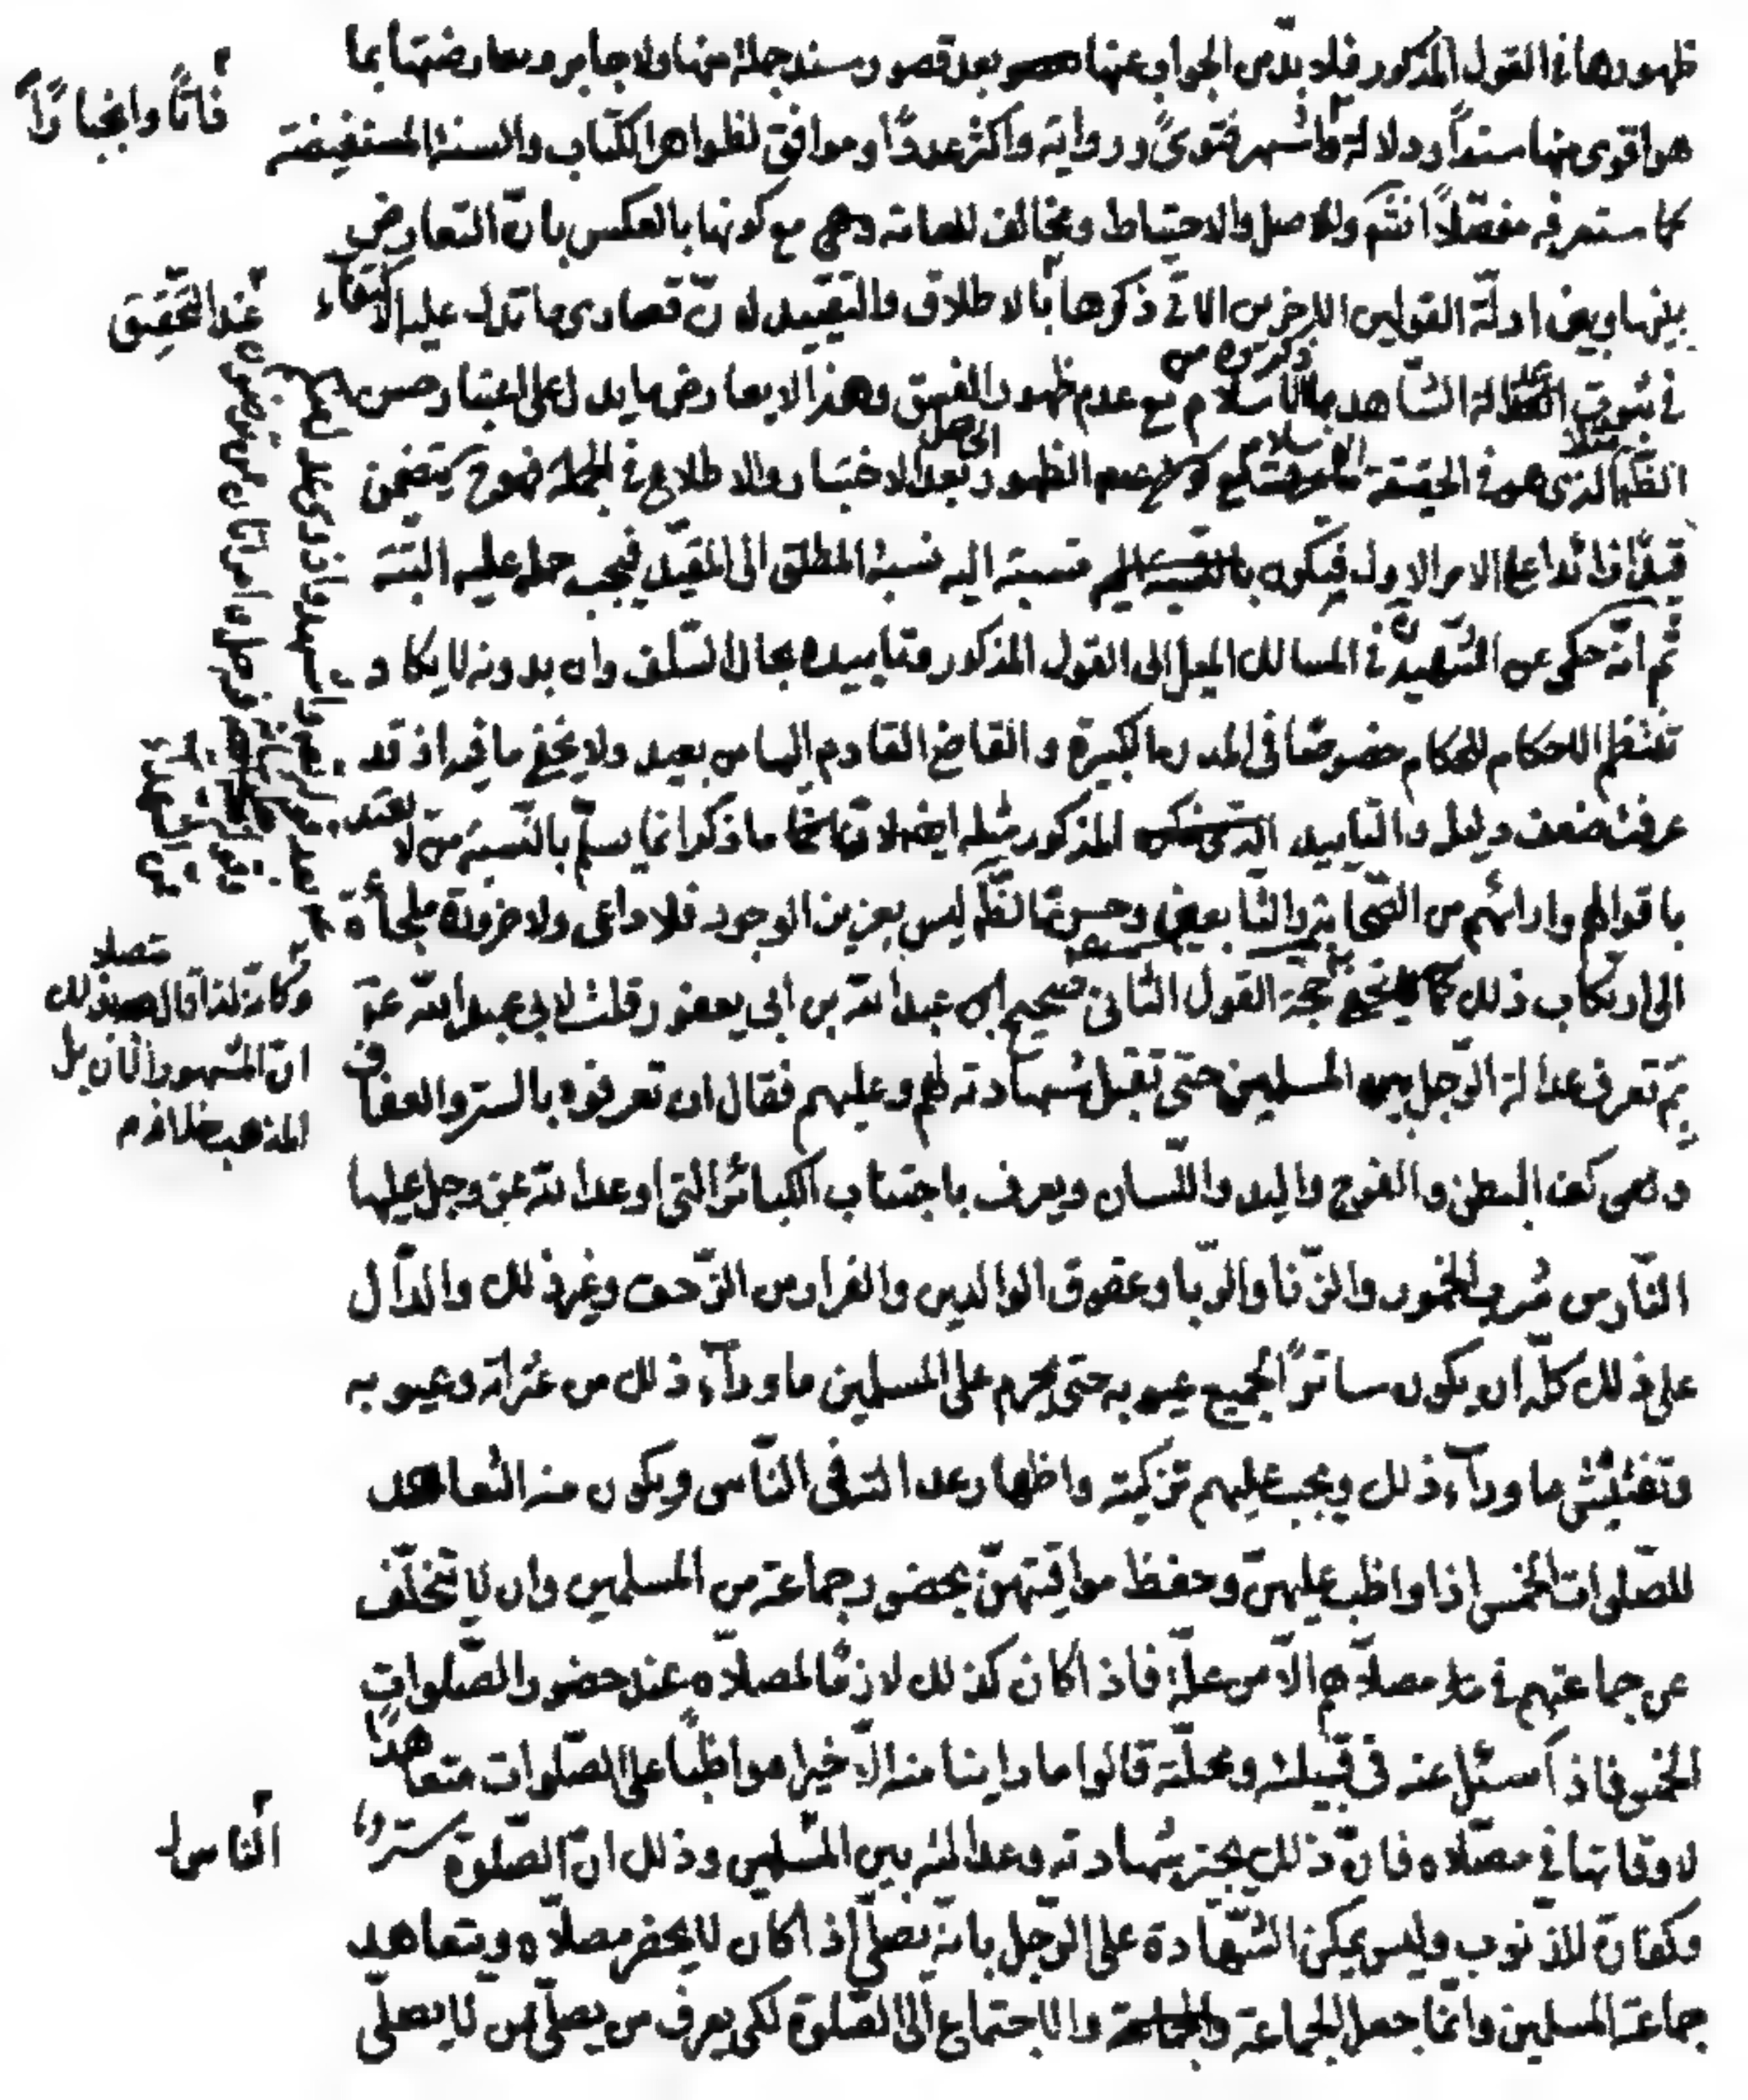 ظهورها في القول المذكور فلا بدّ من الجواب عنها بعد قصور سند جملة منها ولا جابر ومعارضتها بما
هو اقوى منها سنداً ودلالة واشهر فتوىً ورواية واكثر عدداً وموافق لظواهر الكتاب والسنة المستفيضة
كما ستعرفه مفصّلاً انشم وللاصل والاحتياط ومخالف للعامة وهي مع كونها بالعكس بانّ التعارض
بينها وبين ادلّة القولين الاخرين الاتي ذكرها بالاطلاق والتقييد لانّ قصارى ما تدل عليه الاكتفاء
في ثبوت العدالة الشاهد بالاسلام مع عدم ظهور الفسق وهذا لا يعارض ما يدل على اعتبار حسن
الظّاهر الذي هو في الحقيقة الاسلام مع عدم الظهور الحاصل بعد الاختبار والاطلاع في الجملة فهو يتضمن
قيداً زائداً على الامر الاول فيكون نسبته اليه نسبة المطلق الى المقيّد فيجب حمله عليه البتّة
ثم انّه حكى عن الشّهيد في المسالك الميل الى القول المذكور وتأييده بحال السّلف وان بدونه لا يكاد
تنتظم الاحكام للحكام خصوصاً في المدن الكبيرة والقاضي القادم اليها من بعيد ولا يخفى ما فيه اذ قد
عرفت ضعف دليله والتاييد المذكور مثله ايضاً لانّ ما ذكر انما يسلّم بالنّسبة من لا يعتد
باقوالهم وارائهم من الصّحابة والتّابعين وحسن الظّاهر ليس بعزيز الوجود فلا داعي ولا ضرورة ملجأة
الى ارتكاب ذلك حجّة القول الثاني صحيح عبد الله بن ابي يعفور قلت لابي عبد الله عم
بمَ تعرف عدالة الرّجل بين المسلمين حتى تقبل شهادته لهم وعليهم فقال ان تعرفوه بالستر والعفاف
وهي كف البطن والفرج واليد واللّسان ويعرف باجتناب الكبائر التي اوعد الله عزّ وجل عليها
النّار من شرب الخمور والزّنا والرّبا وعقوق الوالدين والفرار من الزّحف وغير ذلك والدّال
على ذلك كلّه ان يكون ساتراً لجميع عيوبه حتى يحرم على المسلمين ما ورآء ذلك من عثراته وعيوبه
وتفتيش ما ورآء ذلك ويجب عليهم تزكيته واظهار عدالته في النّاس ويكون منه التعاهد
للصّلوات الخمس اذا واظب عليهنّ وحفظ مواقيتهنّ بحضور جماعة من المسلمين وان لا يتخلّف
عن جماعتهم في مصلّاهم الّا من علّة فاذا كان كذلك لازماً لمصلّاه عند حضور الصّلوات
الخمس فاذا سئل عنه في قبيلته ومحلّته قالوا ما راينا منه الّا خيرا مواظباً على الصّلوات متعاهداً
لاوقاتها في مصلّاه فانّ ذلك يجيز شهادته وعدالته بين المسلمين وذلك انّ الصّلوة ستر
وكفارة للذّنوب وليس يمكن الشّهادة على الرّجل بانّه يصلّي اذا كان لا يحضر مصلّاه ويتعاهد
جماعة المسلمين وانّما جعل الجماعة والاجتماع الى الصّلوة لكي يعرف من يصلّي ممن لا يصلّي
فانّا وانجباراً
عند التّحقيق
وكانّه لذا قال بعد ذلك
انّ المشهور الان بل
المذهب خلافه
النّاس